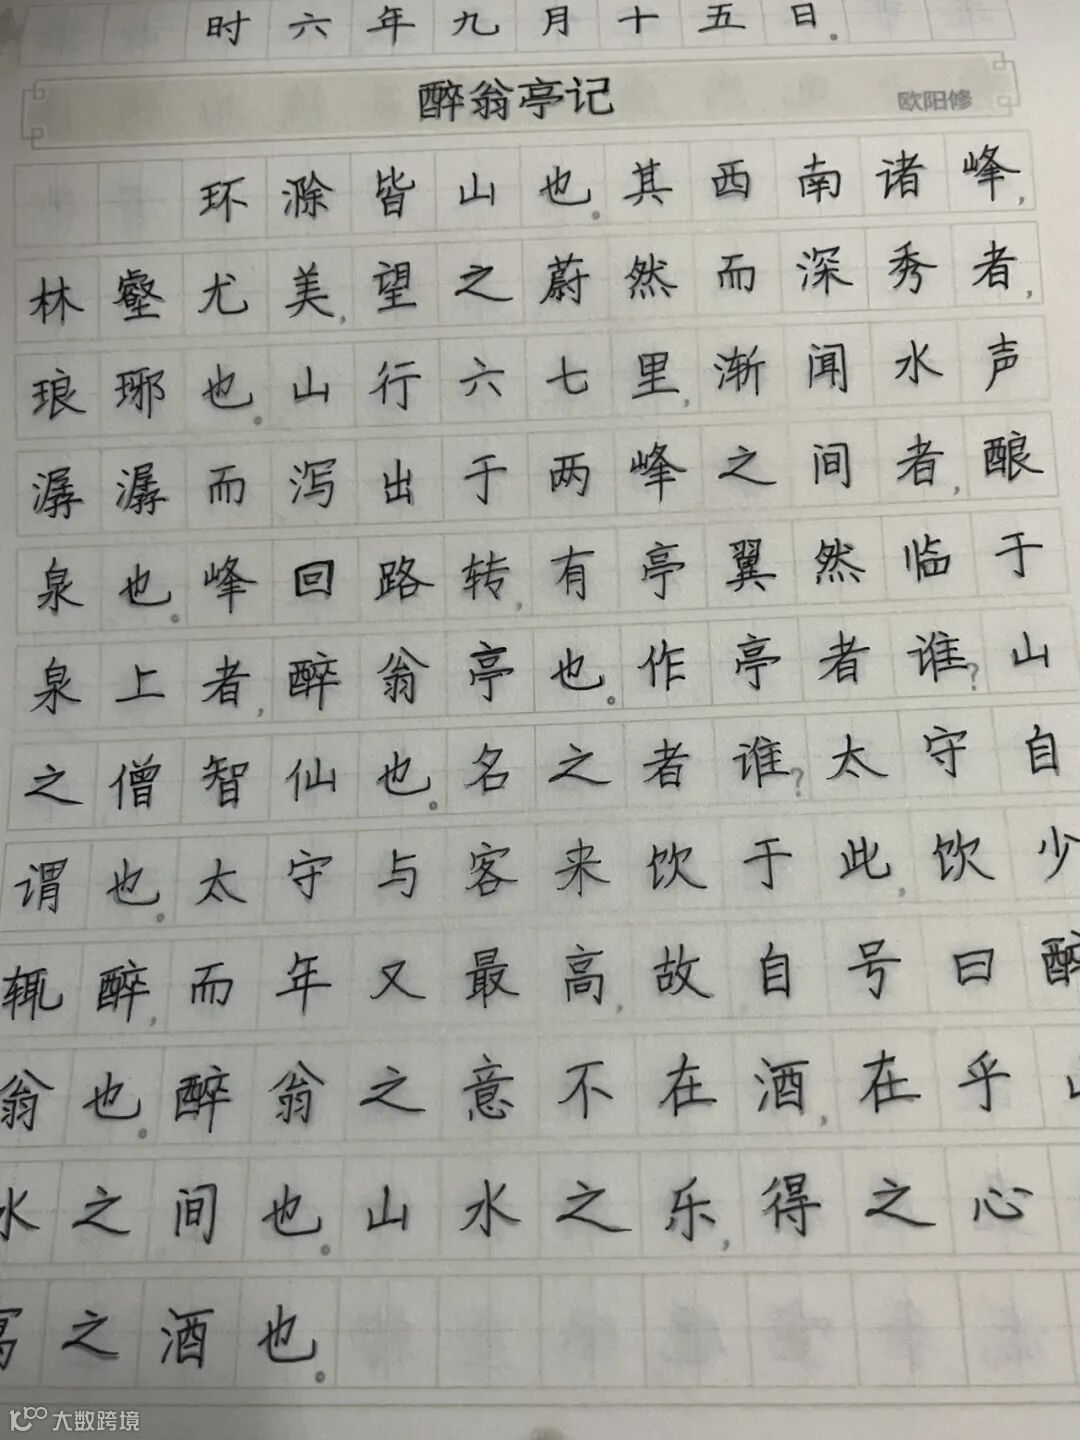 时六年九月十五日。
醉翁亭记
欧阳修
环滁皆山也。其西南诸峰,
林壑尤美,望之蔚然而深秀者,
琅琊也。山行六七里,渐闻水声
潺潺而泻出于两峰之间者,酿
泉也。峰回路转,有亭翼然临于
泉上者,醉翁亭也。作亭者谁?山
之僧智仙也。名之者谁?太守自
谓也。太守与客来饮于此,饮少
辄醉,而年又最高,故自号曰醉
翁也。醉翁之意不在酒,在乎
水之间也。山水之乐,得之心
寓之酒也。
大数跨境